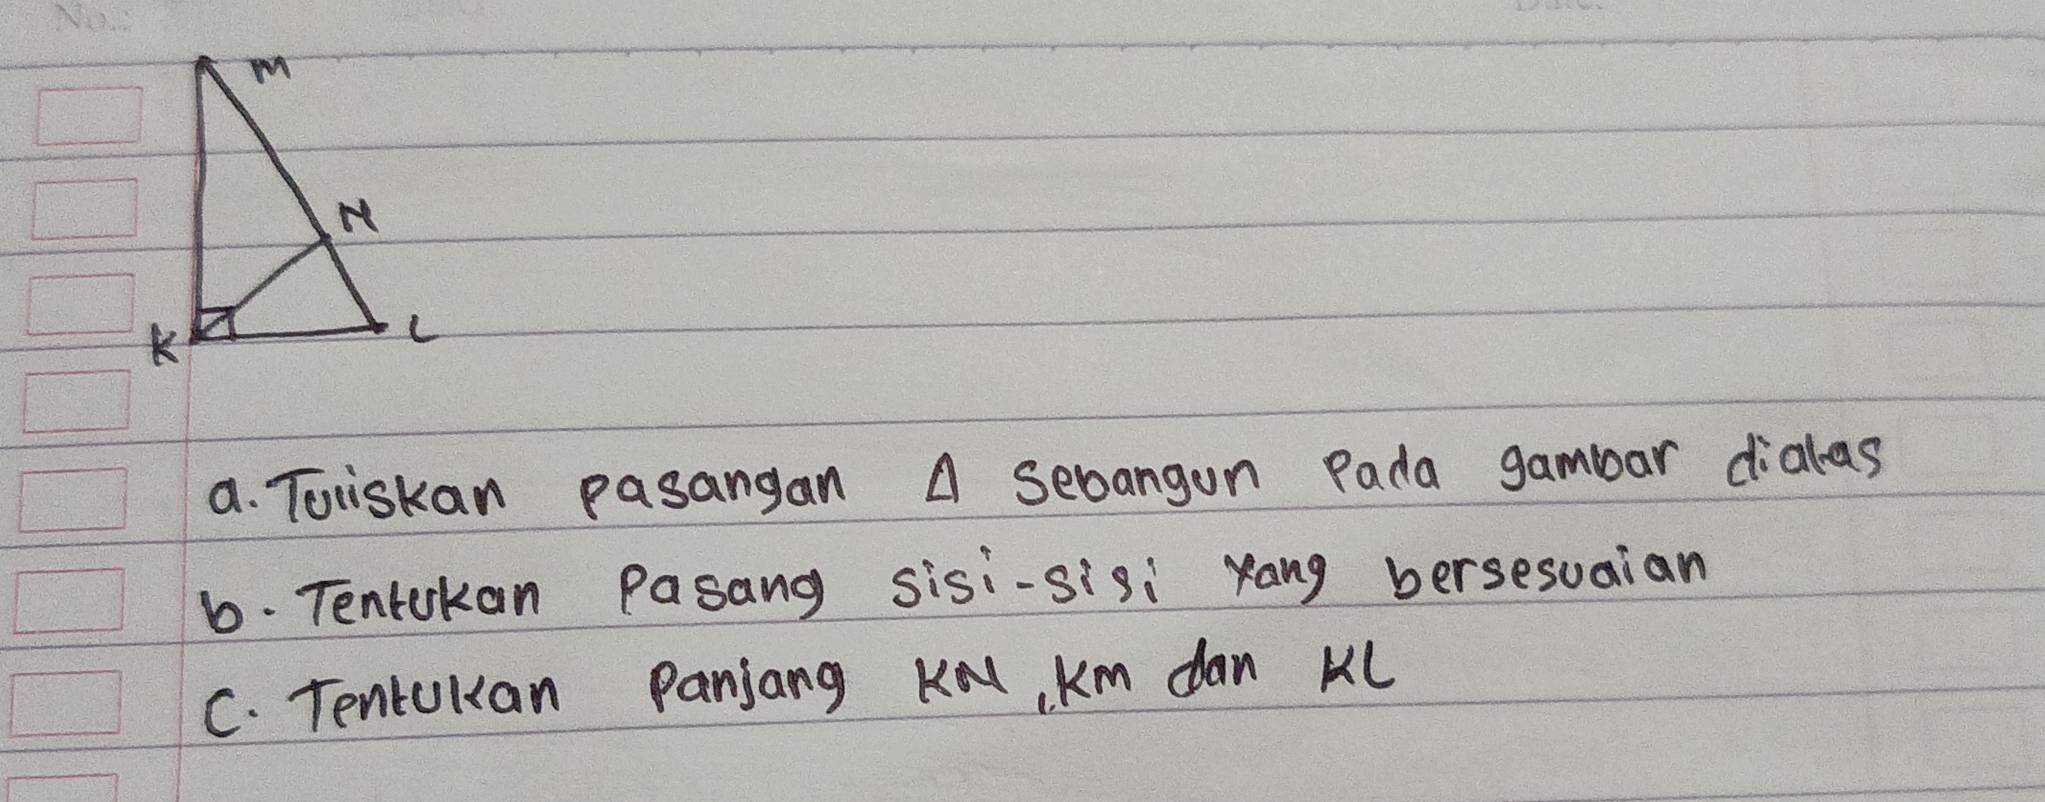 No.:
M
N
K
L
a. Tuliskan pasangan Δ sebangun pada gambar diatas
b. Tentukan pasang sisi-sisi yang bersesuaian
c. Tentukan panjang KN, KM dan KL